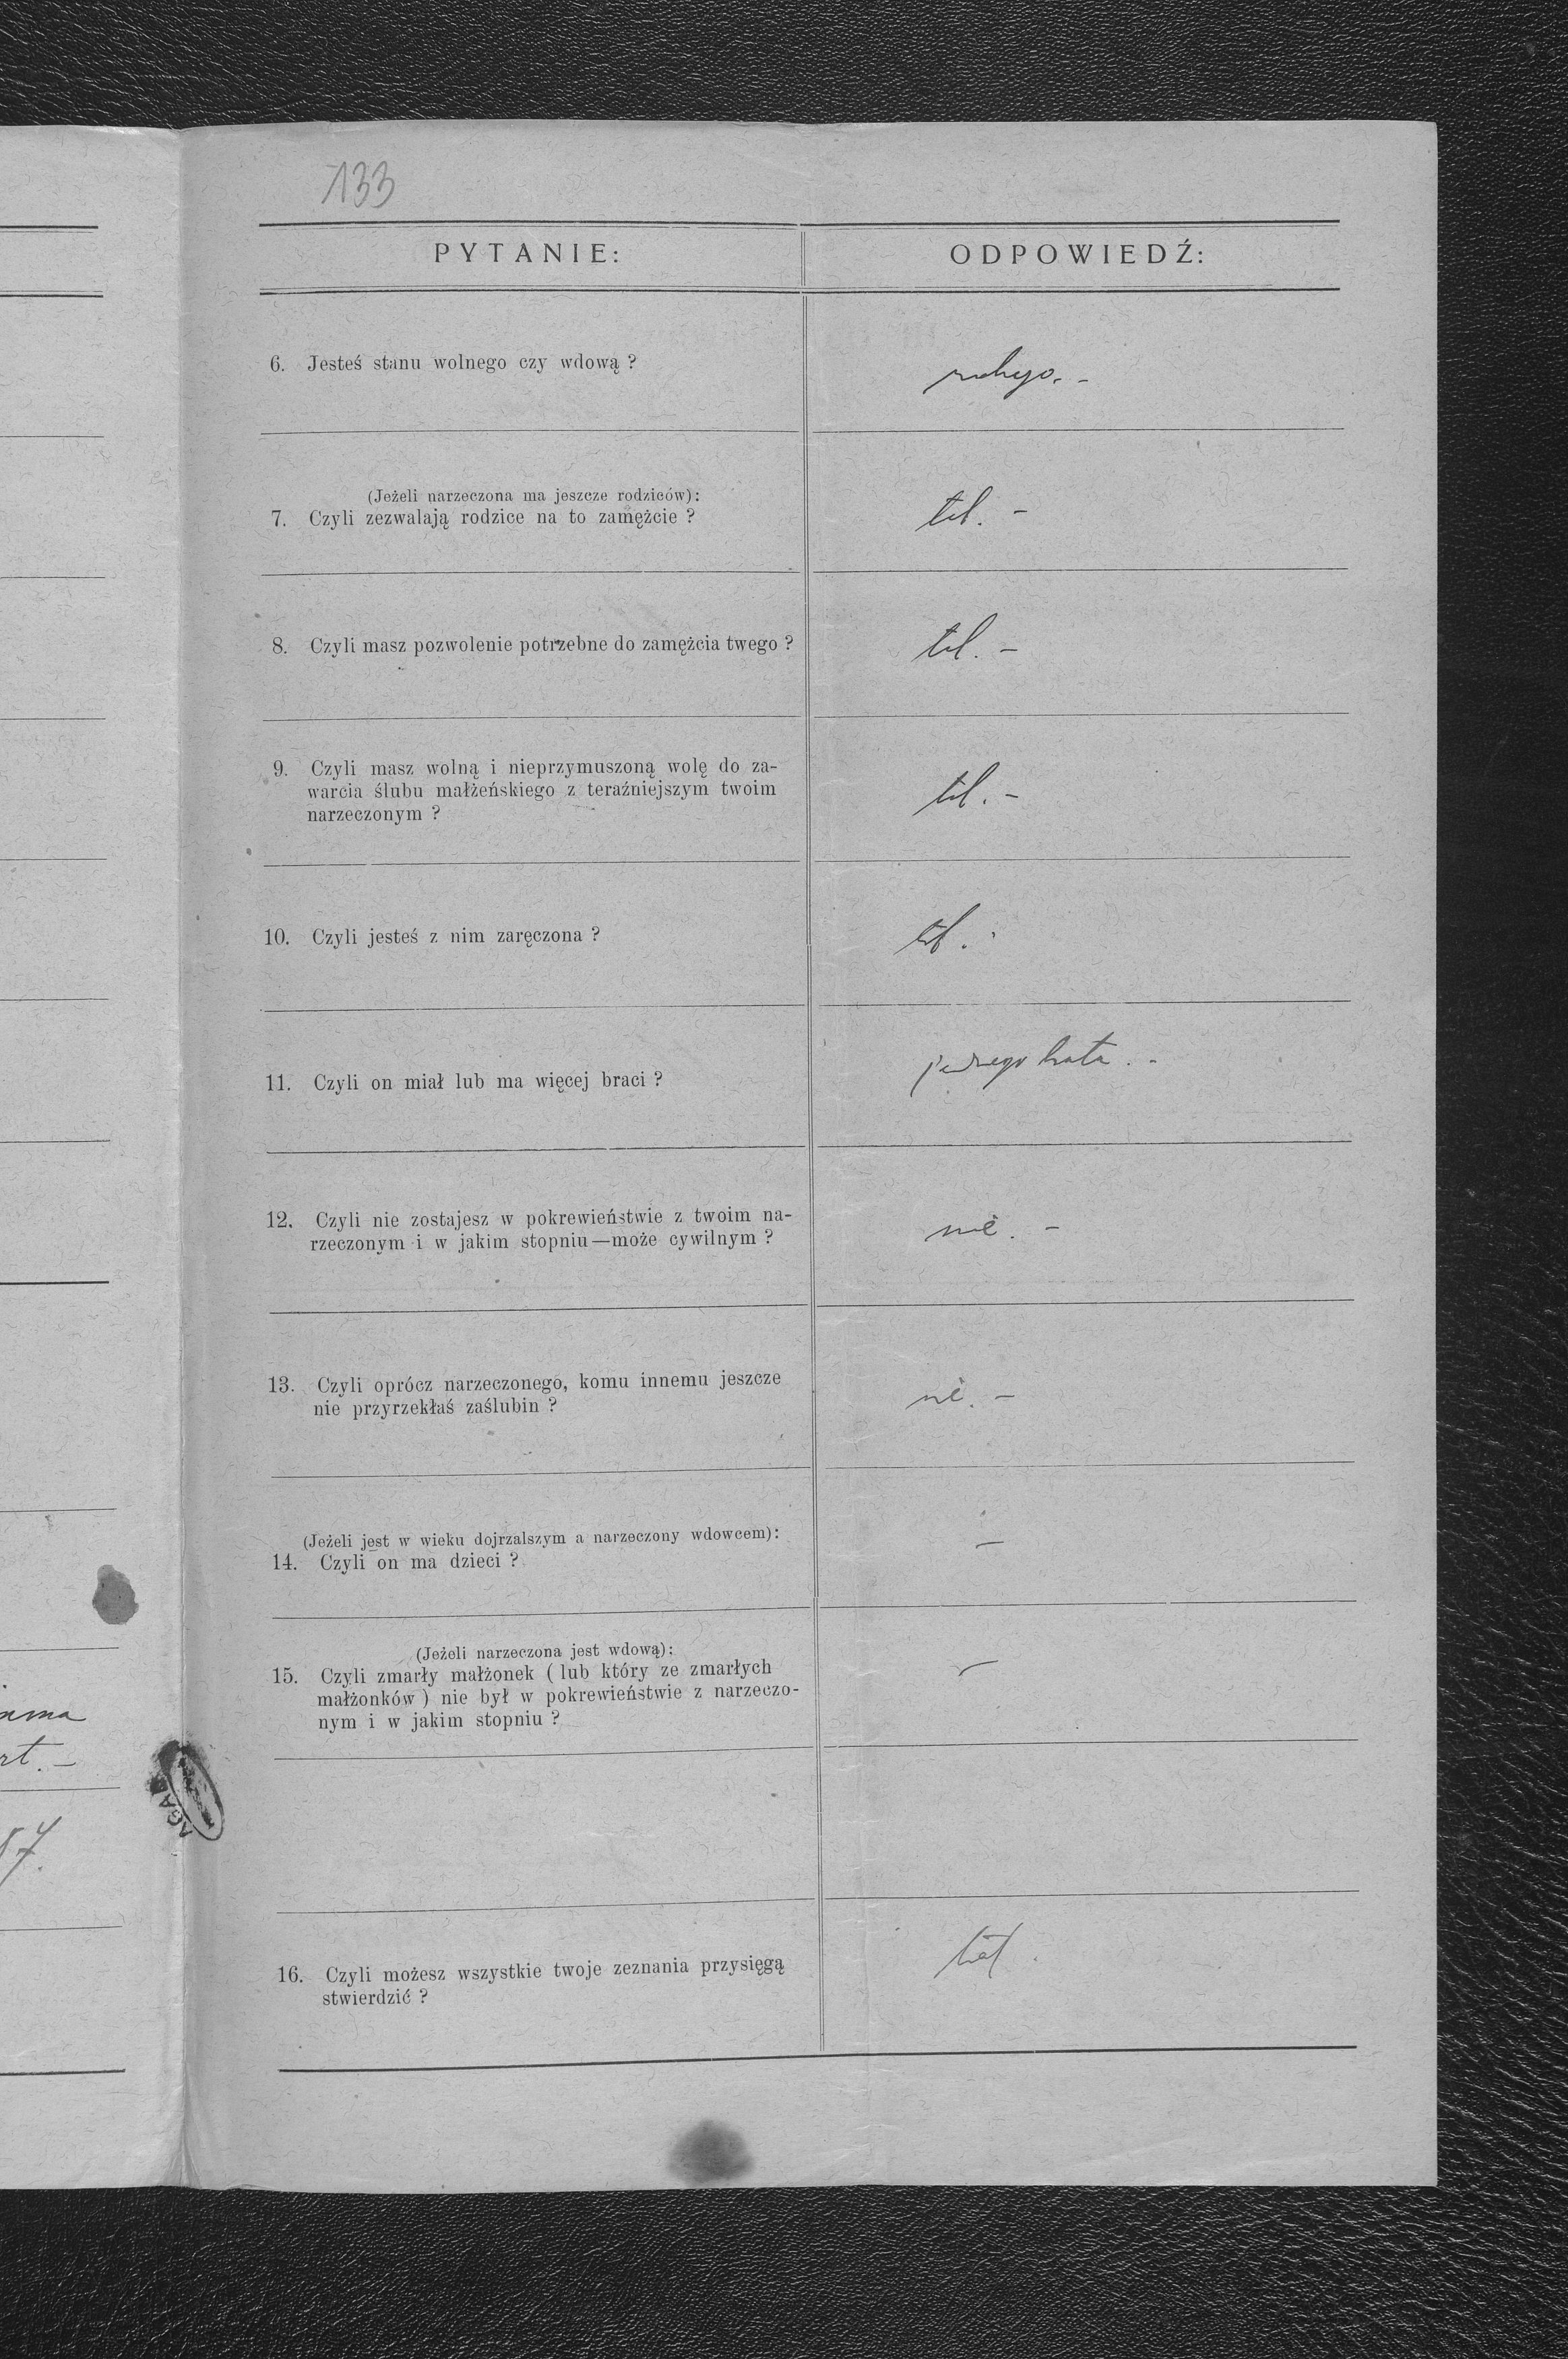 133
PYTANIE: ODPOWIEDŹ:
6. Jesteś stanu wolnego czy wdową ?
wolnego. -
(Jeżeli narzeczona ma jeszcze rodziców):
7. Czyli zezwalają rodzice na to zamężcie ?
tak. -
8. Czyli masz pozwolenie potrzebne do zamężcia twego ?
tak. -
9. Czyli masz wolną i nieprzymuszoną wolę do za-
warcia ślubu małżeńskiego z teraźniejszym twoim
narzeczonym ?
tak. -
10. Czyli jesteś z nim zaręczona ?
tak.
11. Czyli on miał lub ma więcej braci ?
jednego brata. -
12. Czyli nie zostajesz w pokrewieństwie z twoim na-
rzeczonym i w jakim stopniu—może cywilnym ?
nie. -
13. Czyli oprócz narzeczonego, komu innemu jeszcze
nie przyrzekłaś zaślubin ?
nie. -
(Jeżeli jest w wieku dojrzalszym a narzeczony wdowcem):
14. Czyli on ma dzieci ?
—
(Jeżeli narzeczona jest wdową):
15. Czyli zmarły małżonek ( lub który ze zmarłych
małżonków ) nie był w pokrewieństwie z narzeczo-
nym i w jakim stopniu ?
—
16. Czyli możesz wszystkie twoje zeznania przysięgą
stwierdzić ?
tak.
AGAD